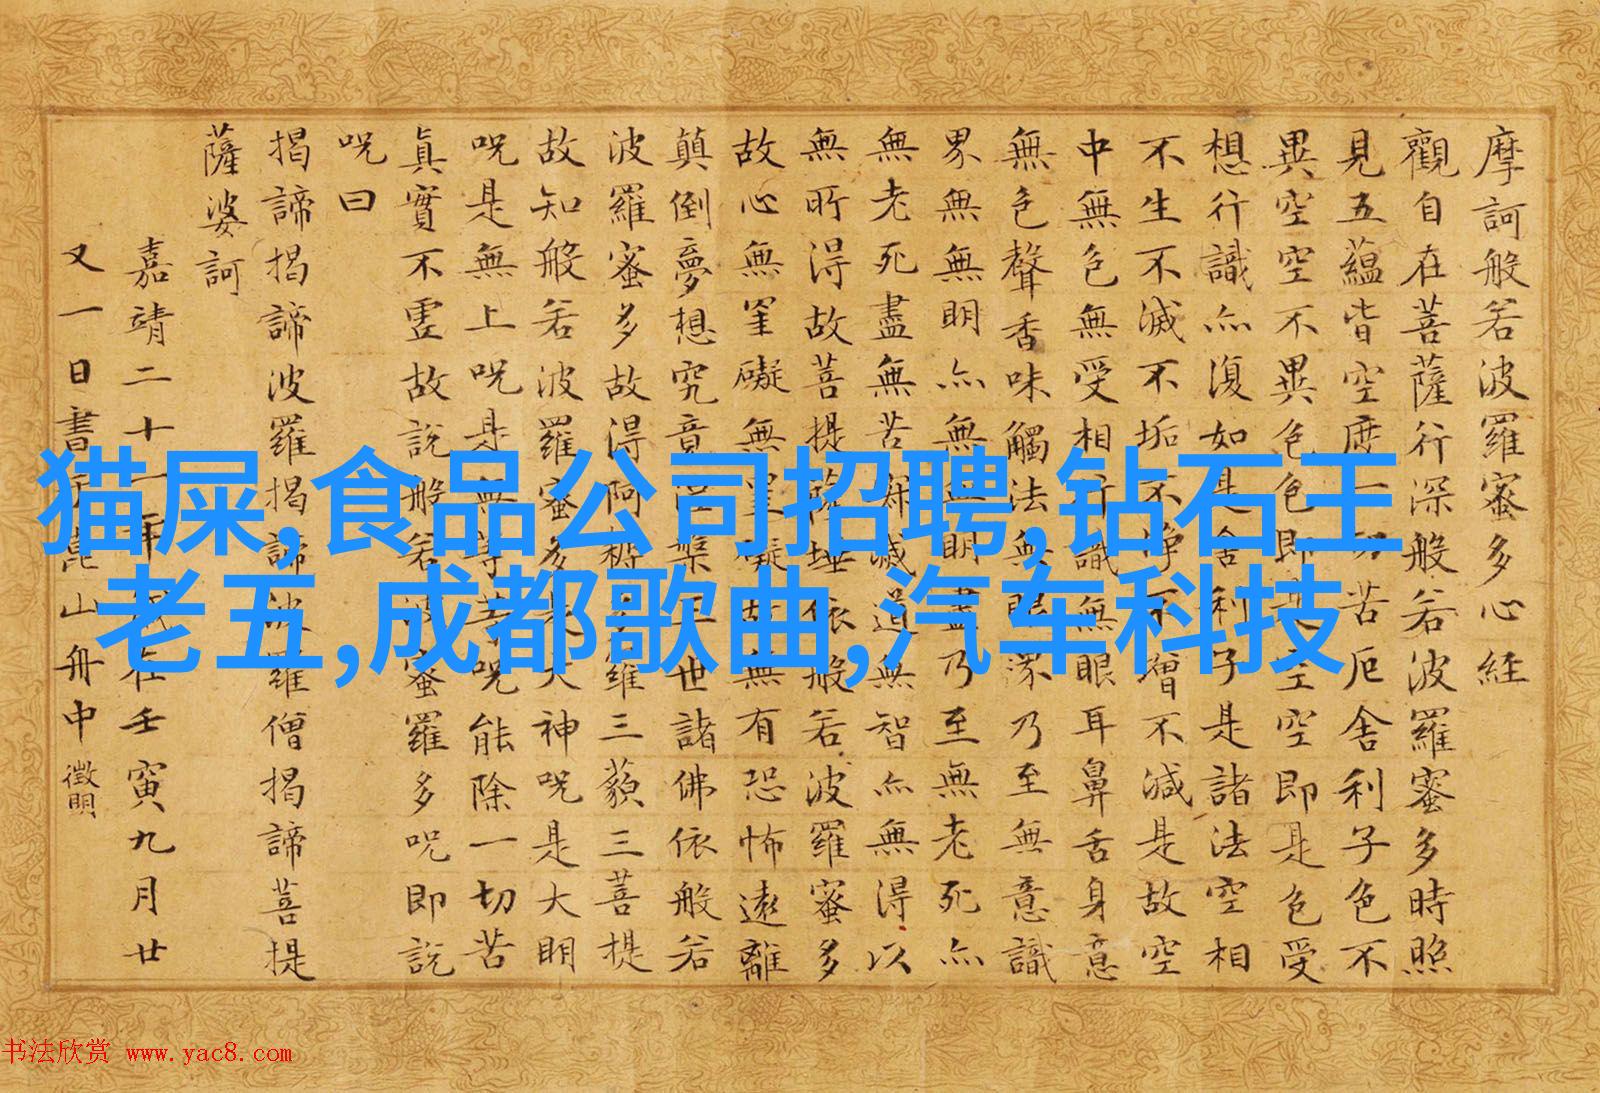 摩訶般若波羅蜜多心経
觀自在菩薩行深般若波羅蜜多時照
見五蘊皆空度一切苦厄舍利子色不
異空空不異色色即是空空即是色受
想行識亦復如是舍利子是諸法空相
不生不滅不垢不淨不增不減是故空
中無色無受相行識無眼耳鼻舌身意
無色聲香味觸法無眼界乃至無意識
界無無明亦無無明盡乃至無老死亦
無老死盡無苦集滅道無智亦無得以
無所得故菩提薩埵依般若波羅蜜多
故心無罣礙無罣礙故無有恐怖遠離
顛倒夢想究竟涅槃三世諸佛依般若
波羅蜜多故得阿耨多羅三藐三菩提
故知般若波羅蜜多是大神呪是大明
呪是無上呪是無等等呪能除一切苦
真實不虛故說般若波蜜羅多呪即說
呪曰
揭諦揭諦波羅揭諦波羅僧揭諦菩提
薩婆訶
嘉靖二十一年歲在壬寅九月廿
又一日書于崑山舟中 徵明
猫屎,食品公司招聘,钻石王
老五,成都歌曲,汽车科技
书法欣赏 www.yac8.com